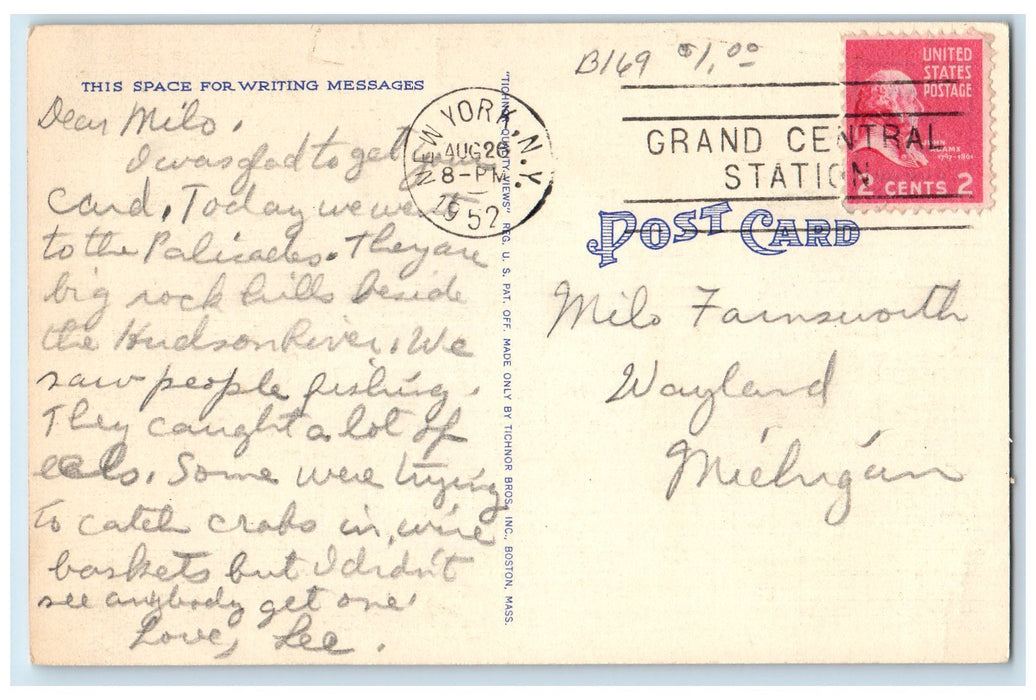 THIS SPACE FOR WRITING MESSAGES
Dear Milo.
I was glad to get your
card. Today we went
to the Palisades. They are
big rock hills beside
the Hudson River. We
saw people fishing.
They caught a lot of
eels. Some were trying
to catch crabs in wire
baskets but I didn't
see anybody get one.
Love, Lee.
"TICHNOR QUALITY VIEWS" REG. U. S. PAT. OFF. MADE ONLY BY TICHNOR BROS., INC., BOSTON, MASS.
NEW YORK, N.Y.
AUG 26
8-PM
1952
B169 $1.00
GRAND CENTRAL
STATION
UNITED
STATES
POSTAGE
JOHN
ADAMS
1797-1801
2 CENTS 2
POST CARD
Milo Farnsworth
Wayland
Michigan